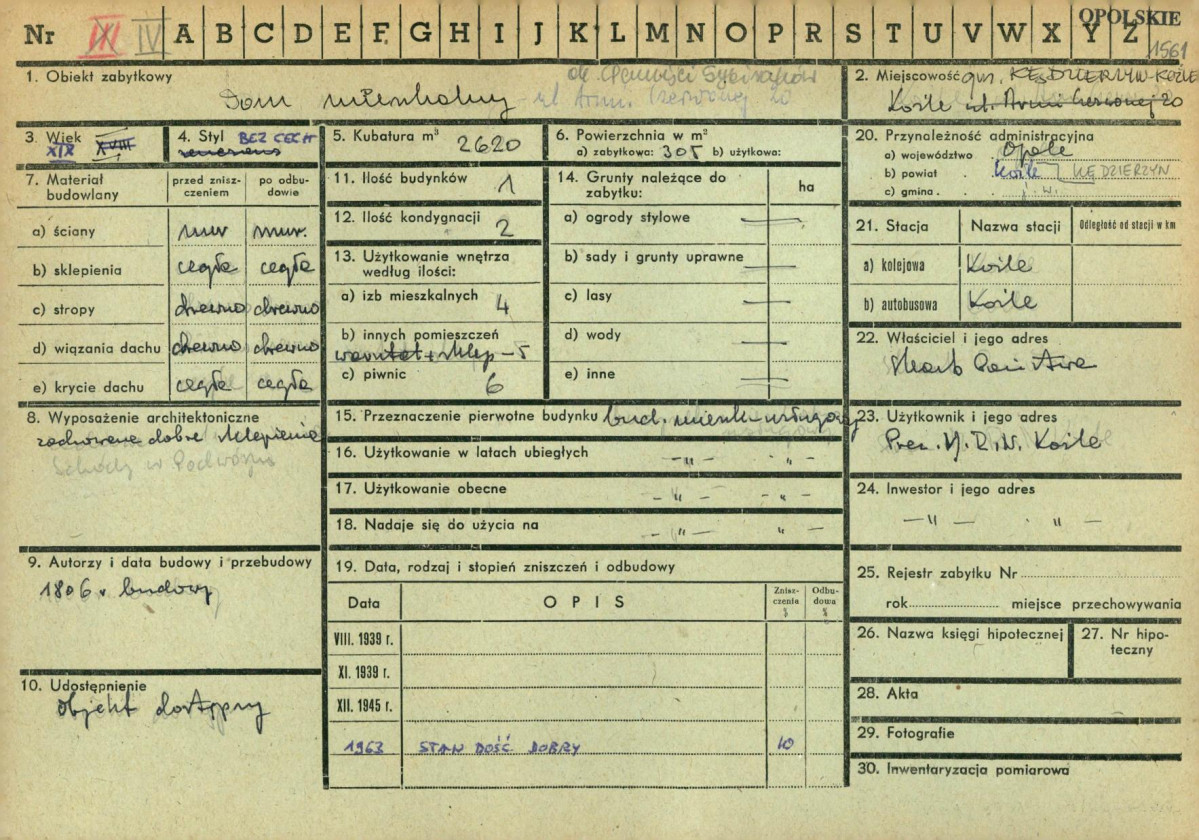 Nr III IV A B C D E F G H I J K L M N O P R S T U V W X Y Z OPOLSKIE
1561
1. Obiekt zabytkowy
Dom mieszkalny
ul. Armii Czerwonej 20
2. Miejscowość gm. KĘDZIERZYN-KOŹLE
Koźle ul. Armii Czerwonej 20
3. Wiek
XIX XVIII
4. Styl BEZ CECH
renesans
5. Kubatura m³ 2620
6. Powierzchnia w m²
a) zabytkowa: 305 b) użytkowa:
7. Materiał budowlany
przed zniszczeniem
po odbudowie
a) ściany mur mur.
b) sklepienia cegła cegła
c) stropy drewno drewno
d) wiązania dachu drewno drewno
e) krycie dachu cegła cegła
8. Wyposażenie architektoniczne
zachowane dobre sklepienie
Schody w Podwórzu
9. Autorzy i data budowy i przebudowy
1806 r. budowy
10. Udostępnienie
Objekt dostępny
11. Ilość budynków 1
12. Ilość kondygnacji 2
13. Użytkowanie wnętrza
według ilości:
a) izb mieszkalnych 4
b) innych pomieszczeń
warsztat + sklep – 5
c) piwnic 6
14. Grunty należące do
zabytku:
ha
a) ogrody stylowe —
b) sady i grunty uprawne —
c) lasy —
d) wody —
e) inne —
15. Przeznaczenie pierwotne budynku bud. mieszk. usługowy
16. Użytkowanie w latach ubiegłych – " – " –
17. Użytkowanie obecne – " – – " –
18. Nadaje się do użycia na – " – " –
19. Data, rodzaj i stopień zniszczeń i odbudowy
Data OPIS Zniszczenia % Odbudowa %
VIII. 1939 r.
XI. 1939 r.
XII. 1945 r.
1963 STAN DOŚĆ DOBRY 10
20. Przynależność administracyjna
a) województwo Opole
b) powiat Koźle KĘDZIERZYN
c) gmina j. w.
21. Stacja Nazwa stacji Odległość od stacji w km
a) kolejowa Koźle
b) autobusowa Koźle
22. Właściciel i jego adres
Skarb Państwa
23. Użytkownik i jego adres
Prez. M.R.N. Koźle
24. Inwestor i jego adres
– " – " –
25. Rejestr zabytku Nr
rok miejsce przechowywania
26. Nazwa księgi hipotecznej
27. Nr hipoteczny
28. Akta
29. Fotografie
30. Inwentaryzacja pomiarowa